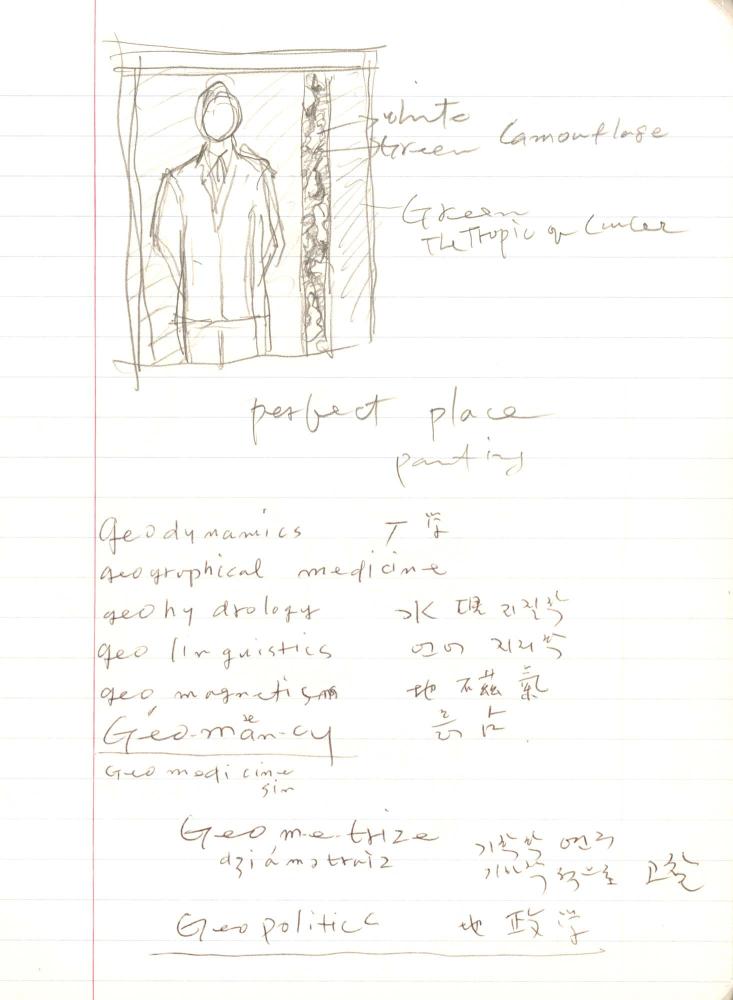 white
Green Camouflage
Green
The Tropic of Cancer
perfect place
panting
geodynamics 学
geographical medicine
geohydrology 水 理 지질학
geo linguistics 언어 지리학
geo magnetism 地 磁 氣
Géo-măn-cy
Geo medicine
Geo me-trize 기하학 연구
기하학 적으로 고찰
Geopolitics 地 政 学